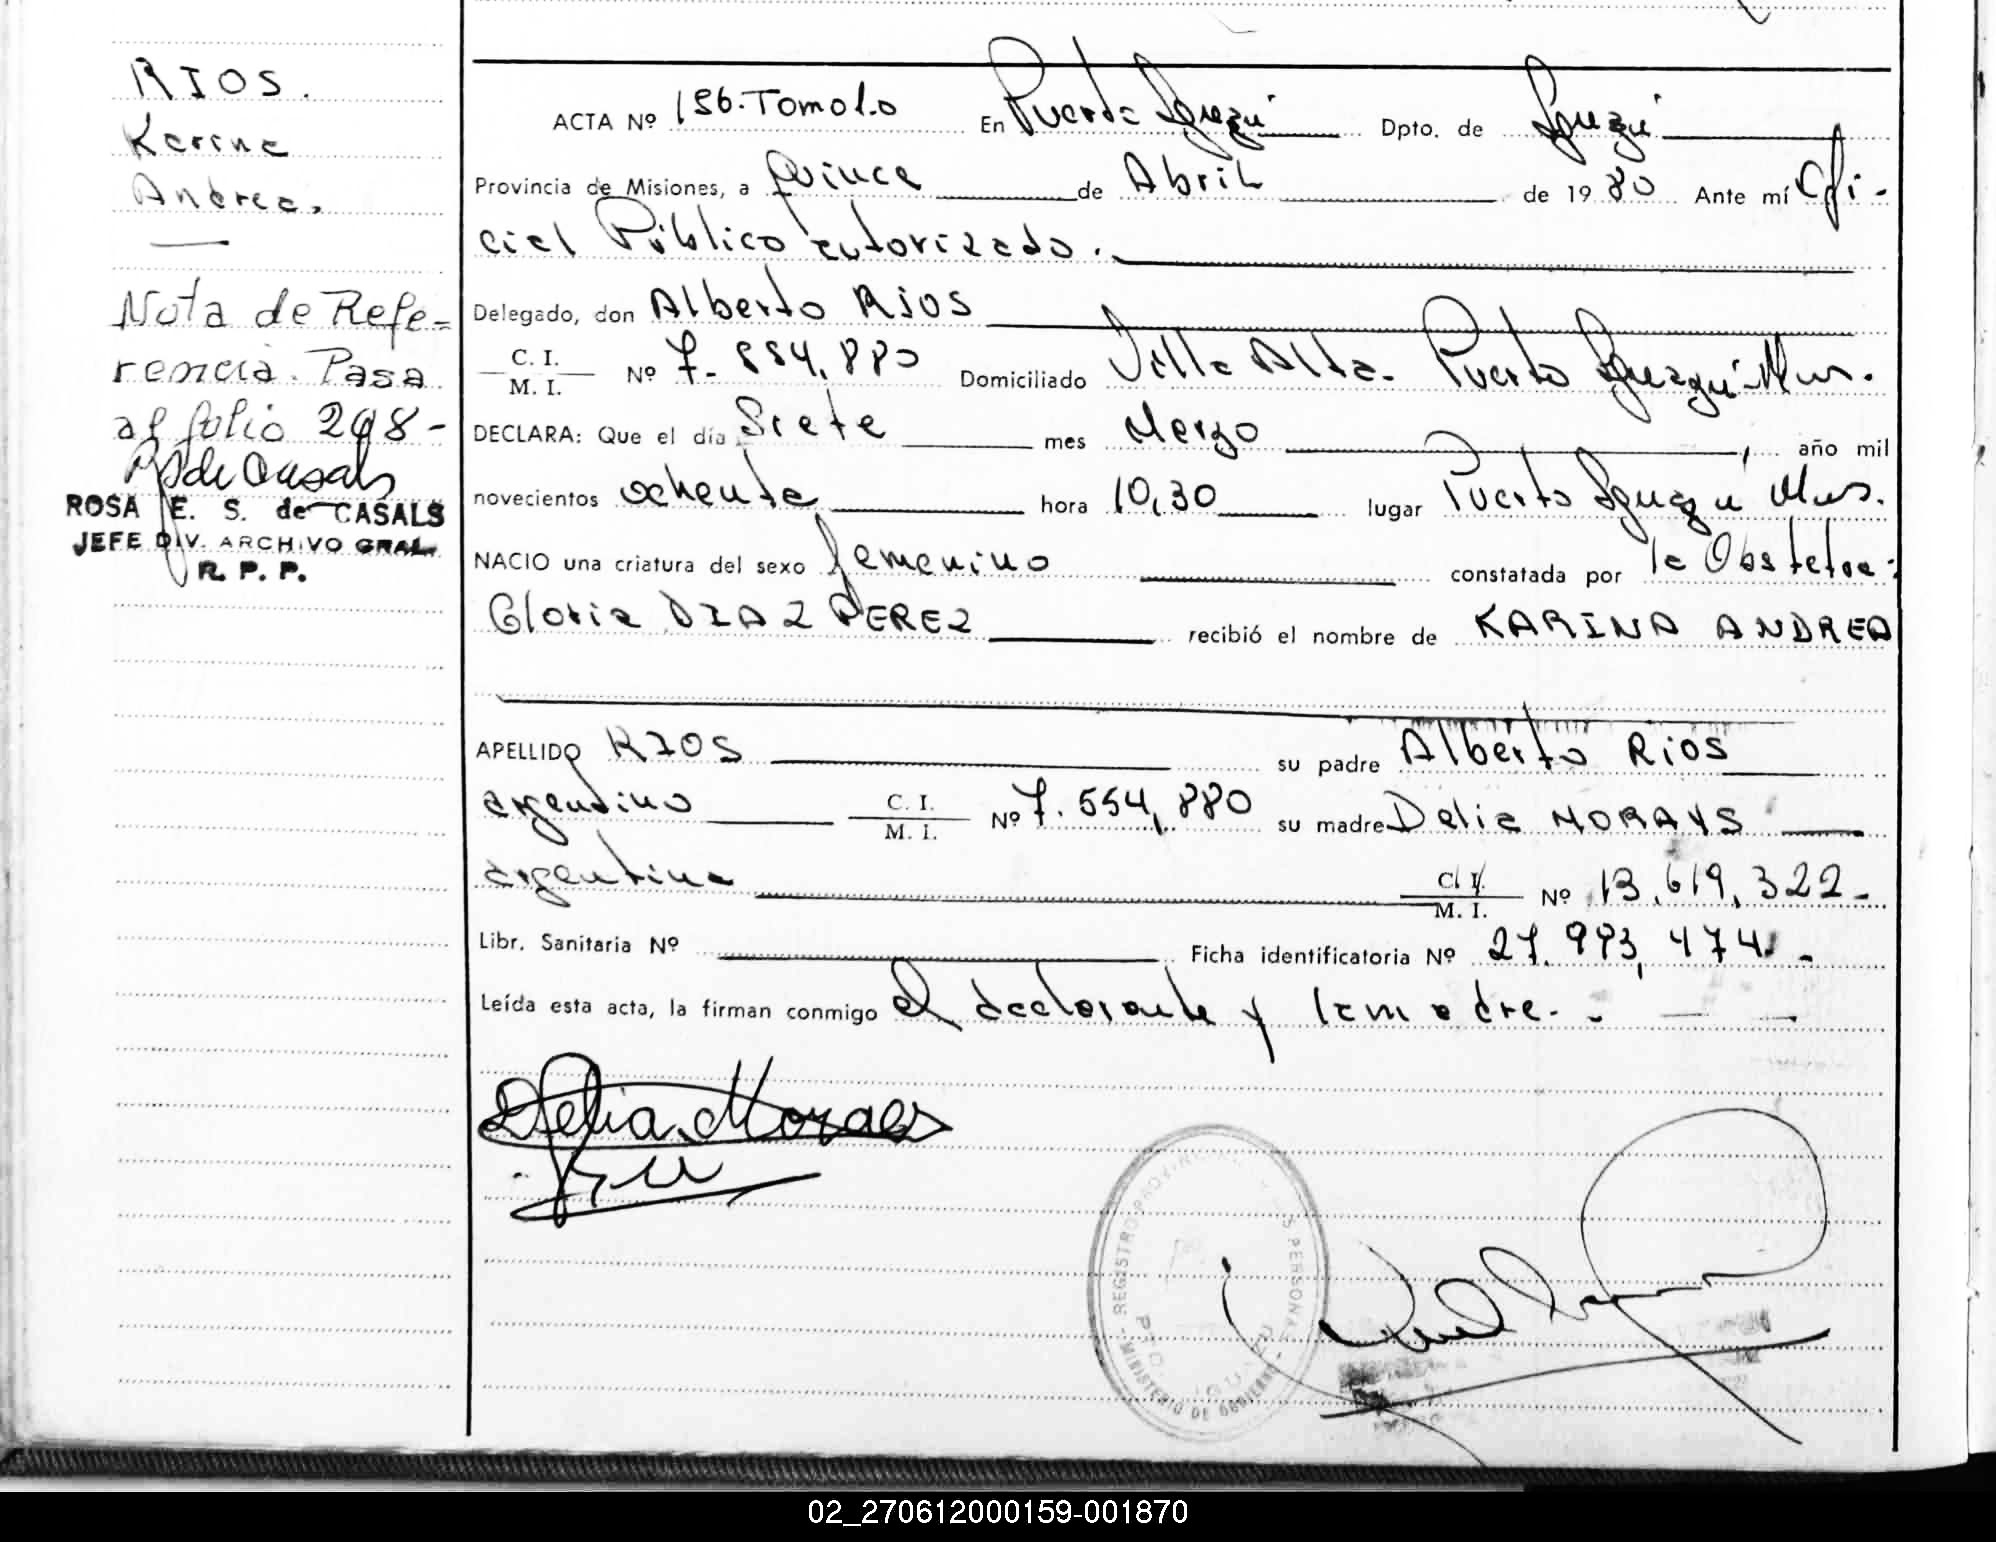 RIOS.
Karina
Andrea.
Nota de Refe-
rencia. Pasa
al folio 298-
RSde Casals
ROSA E. S. de CASALS
JEFE DIV. ARCHIVO GRAL.
R. P. P.
ACTA Nº 156. Tomo 1.o En Puerto Iguazú Dpto. de Iguazú
Provincia de Misiones, a Quince de Abril de 1980 Ante mí Ofi-
cial Público autorizado.
Delegado, don Alberto Ríos
C. I. / M. I. Nº 7.554,880 Domiciliado Villa Alta. Puerto Iguazú Mns.
DECLARA: Que el día Siete mes Marzo, año mil
novecientos ochenta hora 10,30 lugar Puerto Iguazú Mns.
NACIO una criatura del sexo femenino constatada por la Obstetra:
Gloria DIAZ PEREZ recibió el nombre de KARINA ANDREA
APELLIDO RIOS su padre Alberto Ríos
argentino C. I. / M. I. Nº 7.554,880 su madre Delia MORAYS
argentina C. I. / M. I. Nº 13.619,322-
Libr. Sanitaria Nº Ficha identificatoria Nº 27.993,474.-
Leída esta acta, la firman conmigo el declarante y la madre.-
Delia Moraes
REGISTRO PROVINCIAL PERSONAS
MINISTERIO DE GOBIERNO
02_270612000159-001870